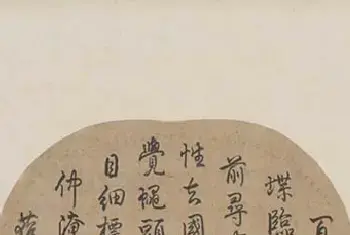 百
蝶臨
前尋
性去國
覺蠅頭
目細標
仲淹